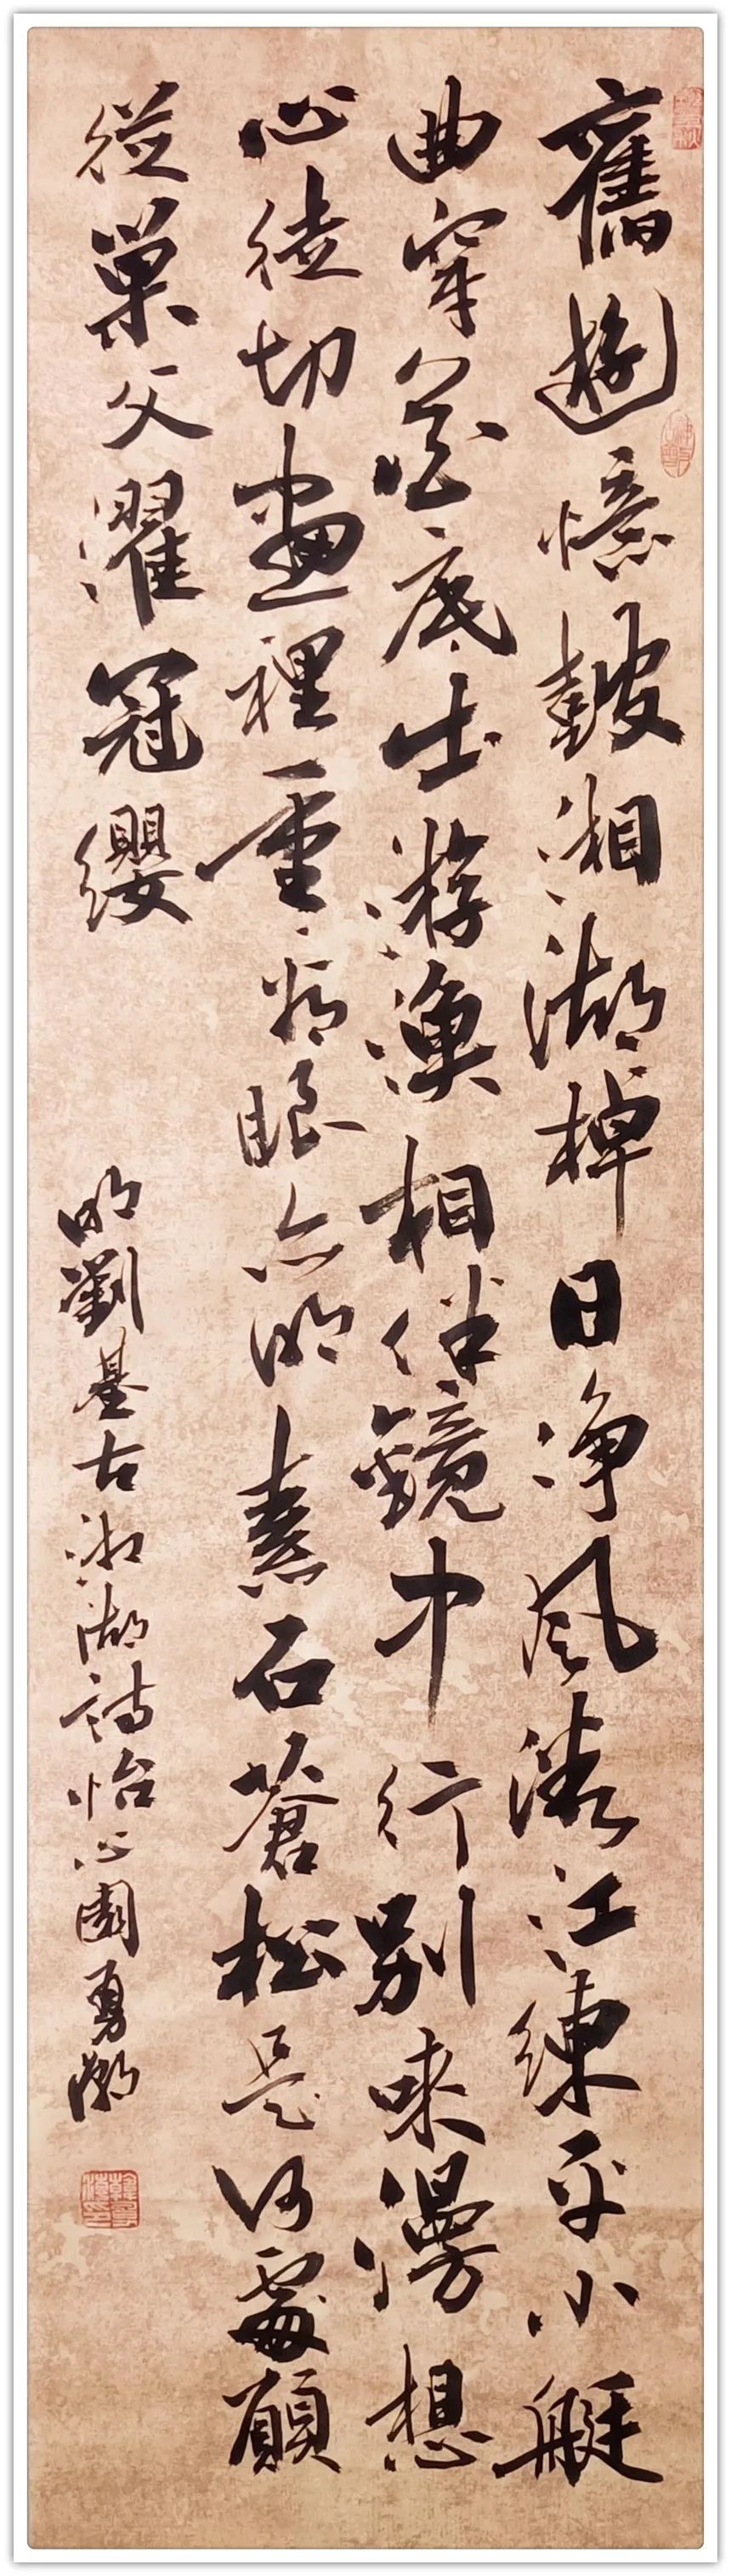 舊遊憶皷湘湖棹日净風江練平小艇
曲穿花底出游漁相伴鏡中行別味漫想
心徒切畫裡重看眼亦明素石蒼松是何處願
從巢父濯冠纓
明劉基古湘湖詩怡心園勇瀚